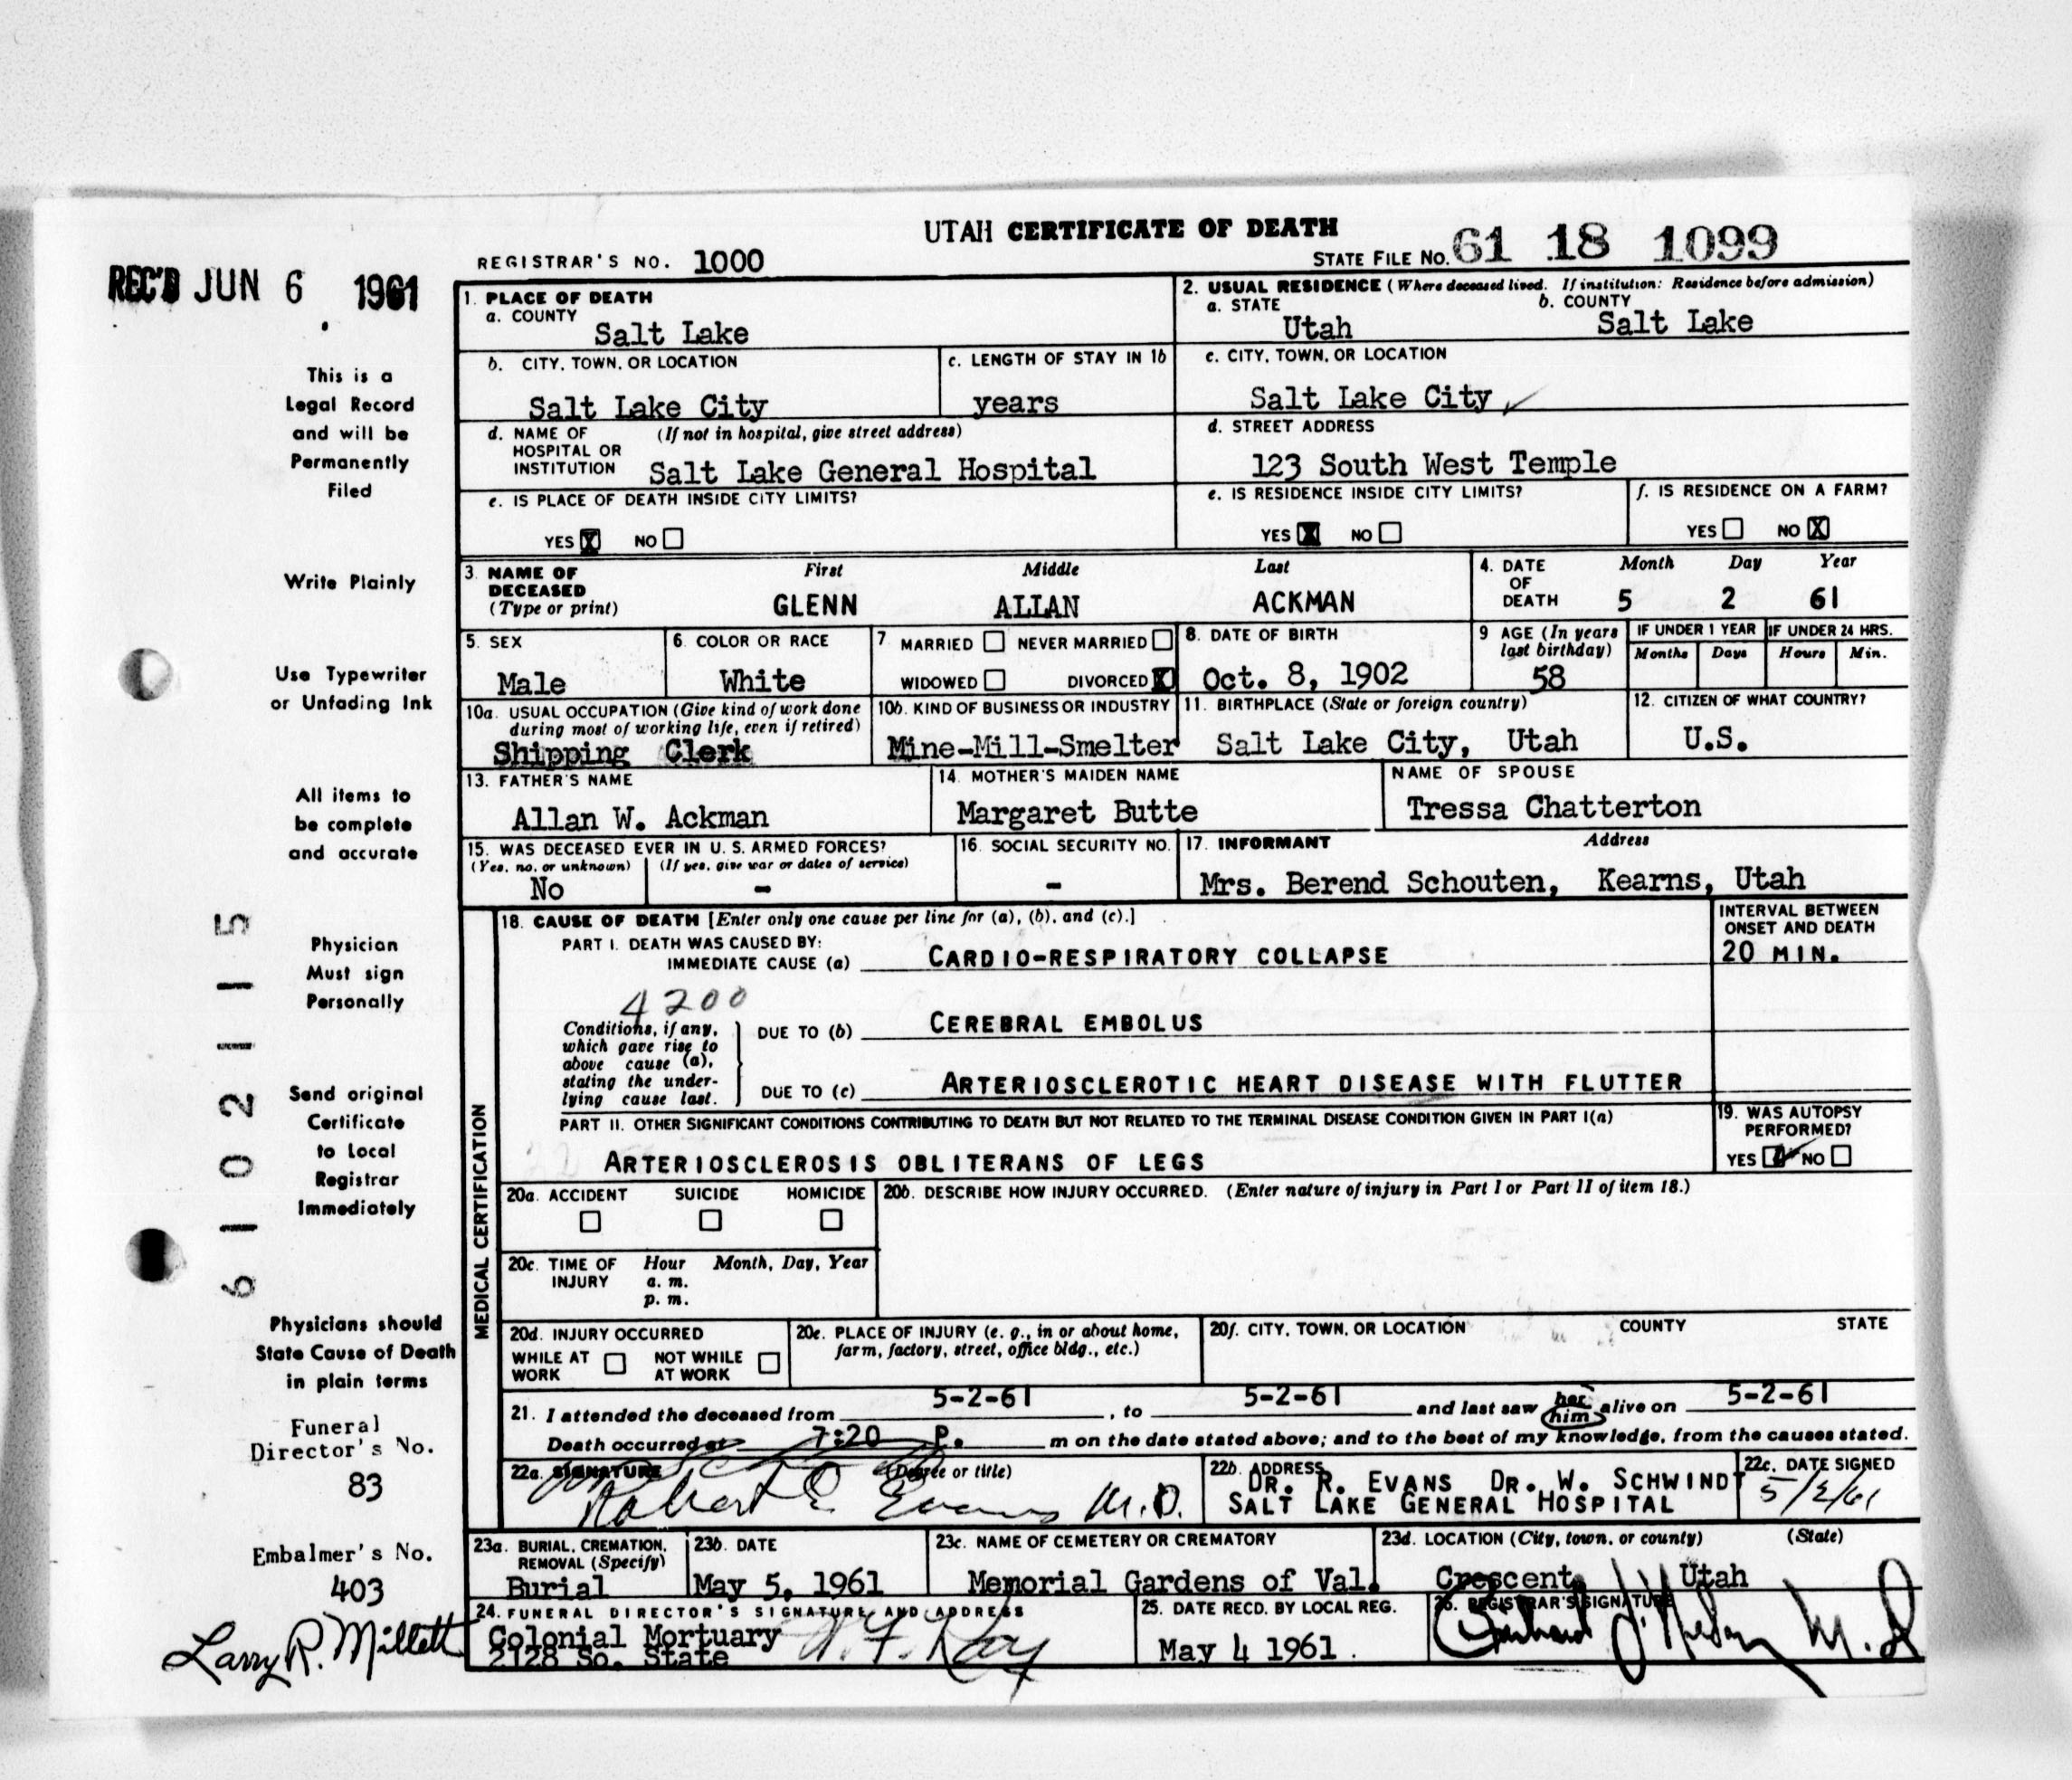 UTAH CERTIFICATE OF DEATH
REGISTRAR'S NO. 1000
STATE FILE NO. 61 18 1099
REC'D JUN 6 1961
This is a
Legal Record
and will be
Permanently
Filed
Write Plainly
Use Typewriter
or Unfading Ink
All items to
be complete
and accurate
Physician
Must sign
Personally
Send original
Certificate
to Local
Registrar
Immediately
Physicians should
State Cause of Death
in plain terms
Funeral
Director's No.
83
Embalmer's No.
403
Larry R. Millett
61021-15
1. PLACE OF DEATH
a. COUNTY
Salt Lake
2. USUAL RESIDENCE (Where deceased lived. If institution: Residence before admission)
a. STATE b. COUNTY
Utah Salt Lake
b. CITY, TOWN, OR LOCATION
Salt Lake City
c. LENGTH OF STAY IN 1b
years
c. CITY, TOWN, OR LOCATION
Salt Lake City
d. NAME OF (If not in hospital, give street address)
HOSPITAL OR
INSTITUTION Salt Lake General Hospital
d. STREET ADDRESS
123 South West Temple
e. IS PLACE OF DEATH INSIDE CITY LIMITS?
YES X NO
e. IS RESIDENCE INSIDE CITY LIMITS?
YES X NO
f. IS RESIDENCE ON A FARM?
YES NO X
3. NAME OF First Middle Last
DECEASED
(Type or print) GLENN ALLAN ACKMAN
4. DATE Month Day Year
OF
DEATH 5 2 61
5. SEX
Male
6. COLOR OR RACE
White
7 MARRIED NEVER MARRIED
WIDOWED DIVORCED X
8. DATE OF BIRTH
Oct. 8, 1902
9 AGE (In years
last birthday)
58
IF UNDER 1 YEAR IF UNDER 24 HRS.
Months Days Hours Min.
10a. USUAL OCCUPATION (Give kind of work done
during most of working life, even if retired)
Shipping Clerk
10b. KIND OF BUSINESS OR INDUSTRY
Mine-Mill-Smelter
11. BIRTHPLACE (State or foreign country)
Salt Lake City, Utah
12. CITIZEN OF WHAT COUNTRY?
U.S.
13. FATHER'S NAME
Allan W. Ackman
14. MOTHER'S MAIDEN NAME
Margaret Butte
NAME OF SPOUSE
Tressa Chatterton
15. WAS DECEASED EVER IN U. S. ARMED FORCES?
(Yes, no, or unknown) (If yes, give war or dates of service)
No -
16. SOCIAL SECURITY NO.
-
17. INFORMANT Address
Mrs. Berend Schouten, Kearns, Utah
MEDICAL CERTIFICATION
18. CAUSE OF DEATH [Enter only one cause per line for (a), (b), and (c).]
INTERVAL BETWEEN
ONSET AND DEATH
PART I. DEATH WAS CAUSED BY:
IMMEDIATE CAUSE (a) CARDIO-RESPIRATORY COLLAPSE 20 MIN.
4200
Conditions, if any,
which gave rise to
above cause (a),
stating the under-
lying cause last.
DUE TO (b) CEREBRAL EMBOLUS
DUE TO (c) ARTERIOSCLEROTIC HEART DISEASE WITH FLUTTER
PART II. OTHER SIGNIFICANT CONDITIONS CONTRIBUTING TO DEATH BUT NOT RELATED TO THE TERMINAL DISEASE CONDITION GIVEN IN PART I(a)
ARTERIOSCLEROSIS OBLITERANS OF LEGS
19. WAS AUTOPSY
PERFORMED?
YES NO
20a. ACCIDENT SUICIDE HOMICIDE
20b. DESCRIBE HOW INJURY OCCURRED. (Enter nature of injury in Part I or Part II of item 18.)
20c. TIME OF Hour Month, Day, Year
INJURY a. m.
p. m.
20d. INJURY OCCURRED
WHILE AT NOT WHILE
WORK AT WORK
20e. PLACE OF INJURY (e. g., in or about home,
farm, factory, street, office bldg., etc.)
20f. CITY, TOWN, OR LOCATION COUNTY STATE
21. I attended the deceased from 5-2-61, to 5-2-61 and last saw her him alive on 5-2-61
Death occurred at 7:20 P. m on the date stated above; and to the best of my knowledge, from the causes stated.
22a. SIGNATURE (Degree or title)
Robert E. Evans M.D.
22b. ADDRESS
DR. R. EVANS DR. W. SCHWINDT
SALT LAKE GENERAL HOSPITAL
22c. DATE SIGNED
5/2/61
23a. BURIAL, CREMATION,
REMOVAL (Specify)
Burial
23b. DATE
May 5, 1961
23c. NAME OF CEMETERY OR CREMATORY
Memorial Gardens of Val.
23d. LOCATION (City, town, or county) (State)
Crescent, Utah
24. FUNERAL DIRECTOR'S SIGNATURE AND ADDRESS
Colonial Mortuary
2128 So. State
25. DATE RECD. BY LOCAL REG.
May 4 1961
26. REGISTRAR'S SIGNATURE
M.D